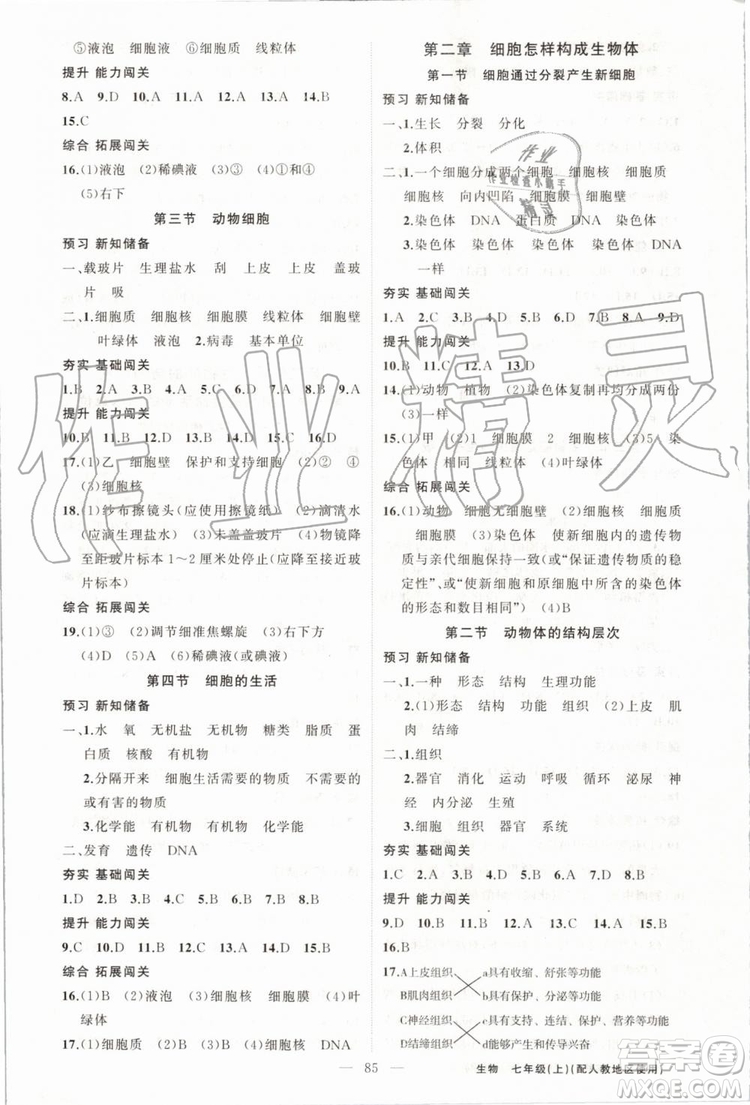 ⑤液泡 细胞液 ⑥细胞质 线粒体
提升 能力闯关
8.A 9.D 10.B 11.A 12.B 13.D 14.C
15.C
综合 拓展闯关
16.(1)液泡 (2)稀碘液 (3)②和④ (4)①和④
(5)右下
第三节 动物细胞
预习 新知储备
一、载玻片 生理盐水 刮 上皮 上皮 盖玻
片 吸
二、1.细胞质 细胞核 细胞膜 线粒体 细胞壁
叶绿体 液泡 2.病毒 基本单位
夯实 基础闯关
1.B 2.A 3.B 4.A 5.C 6.D 7.B 8.B 9.A
提升 能力闯关
10.B 11.D 12.A 13.D 14.C 15.B 16.D
17.(1)乙 细胞壁 保护和支持细胞 (2)② ④
(3)细胞核
18.(1)纱布擦镜头(应使用擦镜纸) (2)滴清水
(应滴生理盐水) (3)未盖盖玻片 (4)物镜降
至距玻片标本1～2厘米处停止(应降至接近玻
片标本)
综合 拓展闯关
19.(1)③ (2)调节细准焦螺旋 (3)右下方
(4)D (5)A (6)稀碘液(或碘液)
第四节 细胞的生活
预习 新知储备
一、1.水 氧 无机盐 无机物 糖类 脂质 蛋
白质 核酸 有机物
2.分隔开来 细胞生活需要的物质 不需要的
或有害的物质
3.化学能 有机物 有机物 化学能
二、发育 遗传 DNA
夯实 基础闯关
1.D 2.B 3.A 4.D 5.C 6.D 7.B 8.B
提升 能力闯关
9.C 10.D 11.B 12.D 13.B 14.D 15.B
综合 拓展闯关
16.(1)B (2)液泡 (3)细胞核 (4)细胞膜 (5)叶
绿体
17.(1)细胞质 (2)细胞核 (3)细胞膜 (4)B
85
第二章 细胞怎样构成生物体
第一节 细胞通过分裂产生新细胞
预习 新知储备
一、1.生长 分裂 分化
2.体积
二、1.一个细胞分成两个细胞 细胞核 细胞质
细胞核 向内凹陷 细胞膜 细胞壁
2.染色体 DNA 蛋白质 DNA 染色体
3.染色体 染色体 染色体 染色体 DNA
一样
夯实 基础闯关
1.A 2.C 3.C 4.D 5.A 6.C 7.B 8.A 9.D
提升 能力闯关
10.B 11.C 12.A 13.D
14.(1)动物 植物 (2)染色体复制再均分成两份
(3)一样
15.(1)甲 (2)1 细胞膜 2 细胞核 (3)5 染
色体 相同 线粒体 (4)叶绿体
综合 拓展闯关
16.(1)动物 细胞无细胞壁 (2)细胞核 细胞
质 细胞膜 (3)染色体 使新细胞内的遗传物
质与亲代细胞保持一致(或“保证遗传物质的稳
定性”,或“使新细胞和原细胞中所含的染色体
的形态和数目相同”) (4)B
第二节 动物体的结构层次
预习 新知储备
一、1.一种 形态 结构 生理功能
2.(1)形态 结构 功能 组织 (2)上皮 肌
肉 结缔
二、1.组织
2.器官 消化 运动 呼吸 循环 泌尿 神
经 内分泌 生殖
3.细胞 组织 器官 系统
夯实 基础闯关
1.C 2.A 3.A 4.B 5.C 6.A 7.C 8.B
提升 能力闯关
9.D 10.D 11.B 12.D 13.C 14.A 15.A
16.B
17.A上皮组织 a具有收缩、舒张等功能
B肌肉组织 b具有保护、分泌等功能
C神经组织 c具有支持、连接、保护、营养等功能
D结缔组织 d能够产生和传导兴奋
生物 七年级(上)(配人教地区使用)
作业
作业检查小助手
精灵
作业精灵
答案圈
MXQE.COM